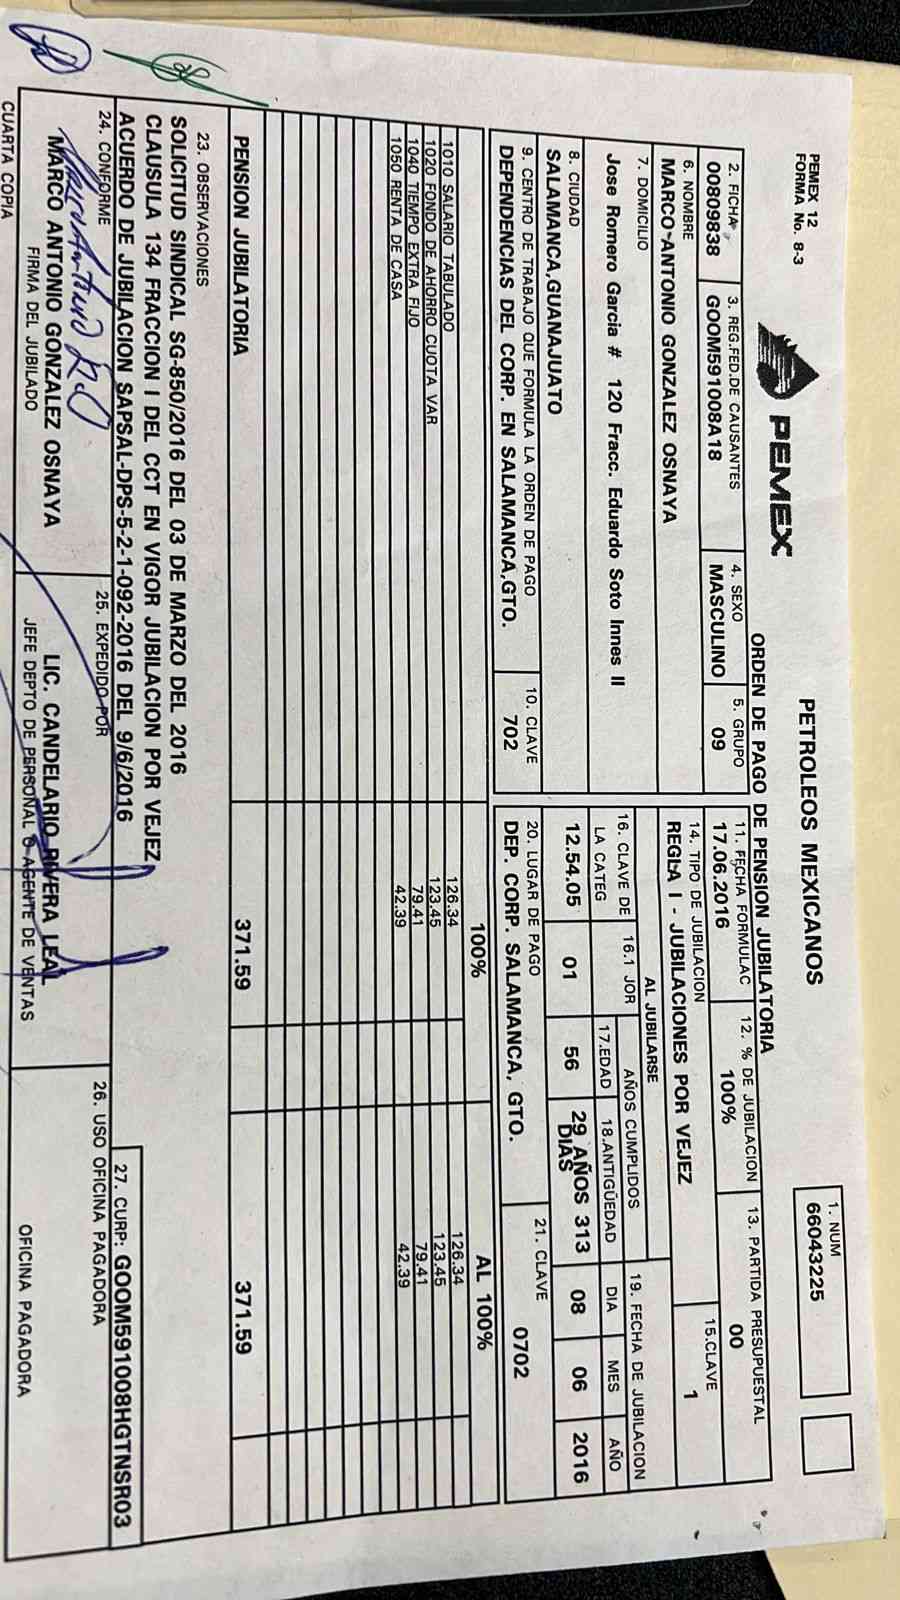 PEMEX 12
FORMA No. 8-3
PEMEX
PETROLEOS MEXICANOS
ORDEN DE PAGO DE PENSION JUBILATORIA
1. NUM
66043225
2. FICHA
00809838
3. REG.FED.DE CAUSANTES
GOOM591008A18
4. SEXO
MASCULINO
5. GRUPO
09
6. NOMBRE
MARCO-ANTONIO GONZALEZ OSNAYA
7. DOMICILIO
Jose Romero Garcia # 120 Fracc. Eduardo Soto Innes II
8. CIUDAD
SALAMANCA,GUANAJUATO
9. CENTRO DE TRABAJO QUE FORMULA LA ORDEN DE PAGO
DEPENDENCIAS DEL CORP. EN SALAMANCA,GTO.
10. CLAVE
702
11. FECHA FORMULAC
17.06.2016
12. % DE JUBILACION
100%
13. PARTIDA PRESUPUESTAL
00
14. TIPO DE JUBILACION
REGLA I - JUBILACIONES POR VEJEZ
15.CLAVE
1
AL JUBILARSE
16. CLAVE DE
LA CATEG
12.54.05
16.1 JOR
01
AÑOS CUMPLIDOS
17.EDAD
56
18.ANTIGÜEDAD
29 AÑOS 313
DIAS
19. FECHA DE JUBILACION
DIA MES AÑO
08 06 2016
20. LUGAR DE PAGO
DEP. CORP. SALAMANCA, GTO.
21. CLAVE
0702
100% AL 100%
1010 SALARIO TABULADO 126.34 126.34
1020 FONDO DE AHORRO CUOTA VAR 123.45 123.45
1040 TIEMPO EXTRA FIJO 79.41 79.41
1050 RENTA DE CASA 42.39 42.39
PENSION JUBILATORIA 371.59 371.59
23. OBSERVACIONES
SOLICITUD SINDICAL SG-850/2016 DEL 03 DE MARZO DEL 2016
CLAUSULA 134 FRACCION I DEL CCT EN VIGOR JUBILACION POR VEJEZ
ACUERDO DE JUBILACION SAPSAL-DPS-5-2-1-092-2016 DEL 9/6/2016
27. CURP: GOOM591008HGTNSR03
24. CONFORME
MARCO ANTONIO GONZALEZ OSNAYA
FIRMA DEL JUBILADO
25. EXPEDIDO POR
LIC. CANDELARIO RIVERA LEAL
JEFE DEPTO DE PERSONAL O AGENTE DE VENTAS
26. USO OFICINA PAGADORA
OFICINA PAGADORA
CUARTA COPIA